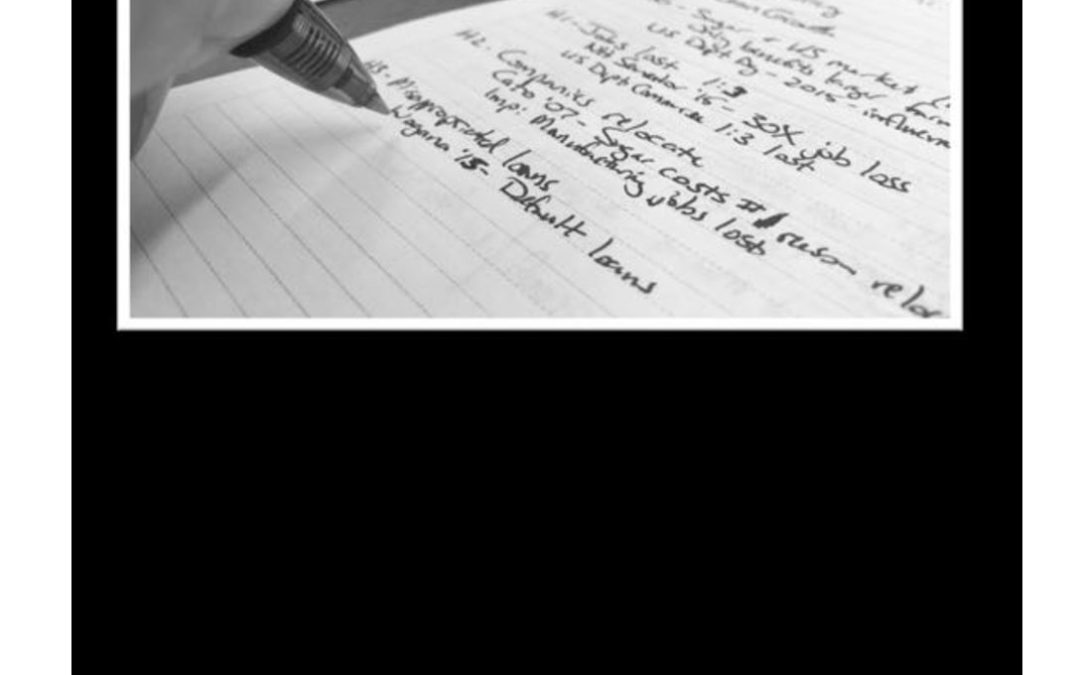 Sugar & US market
only benefits large farm
US Dept Ag - 2015 - influence
H1 - Jobs lost 1:3
NH Senator '15 - 30% job loss
US Dept Commerce 1:3 lost
H2 - Companies relocate
Cato '07 - Sugar costs #1 reason reloc
Imp: Manufacturing jobs lost
H3 - Misappropriated loans
Wagner '15 - Default loans